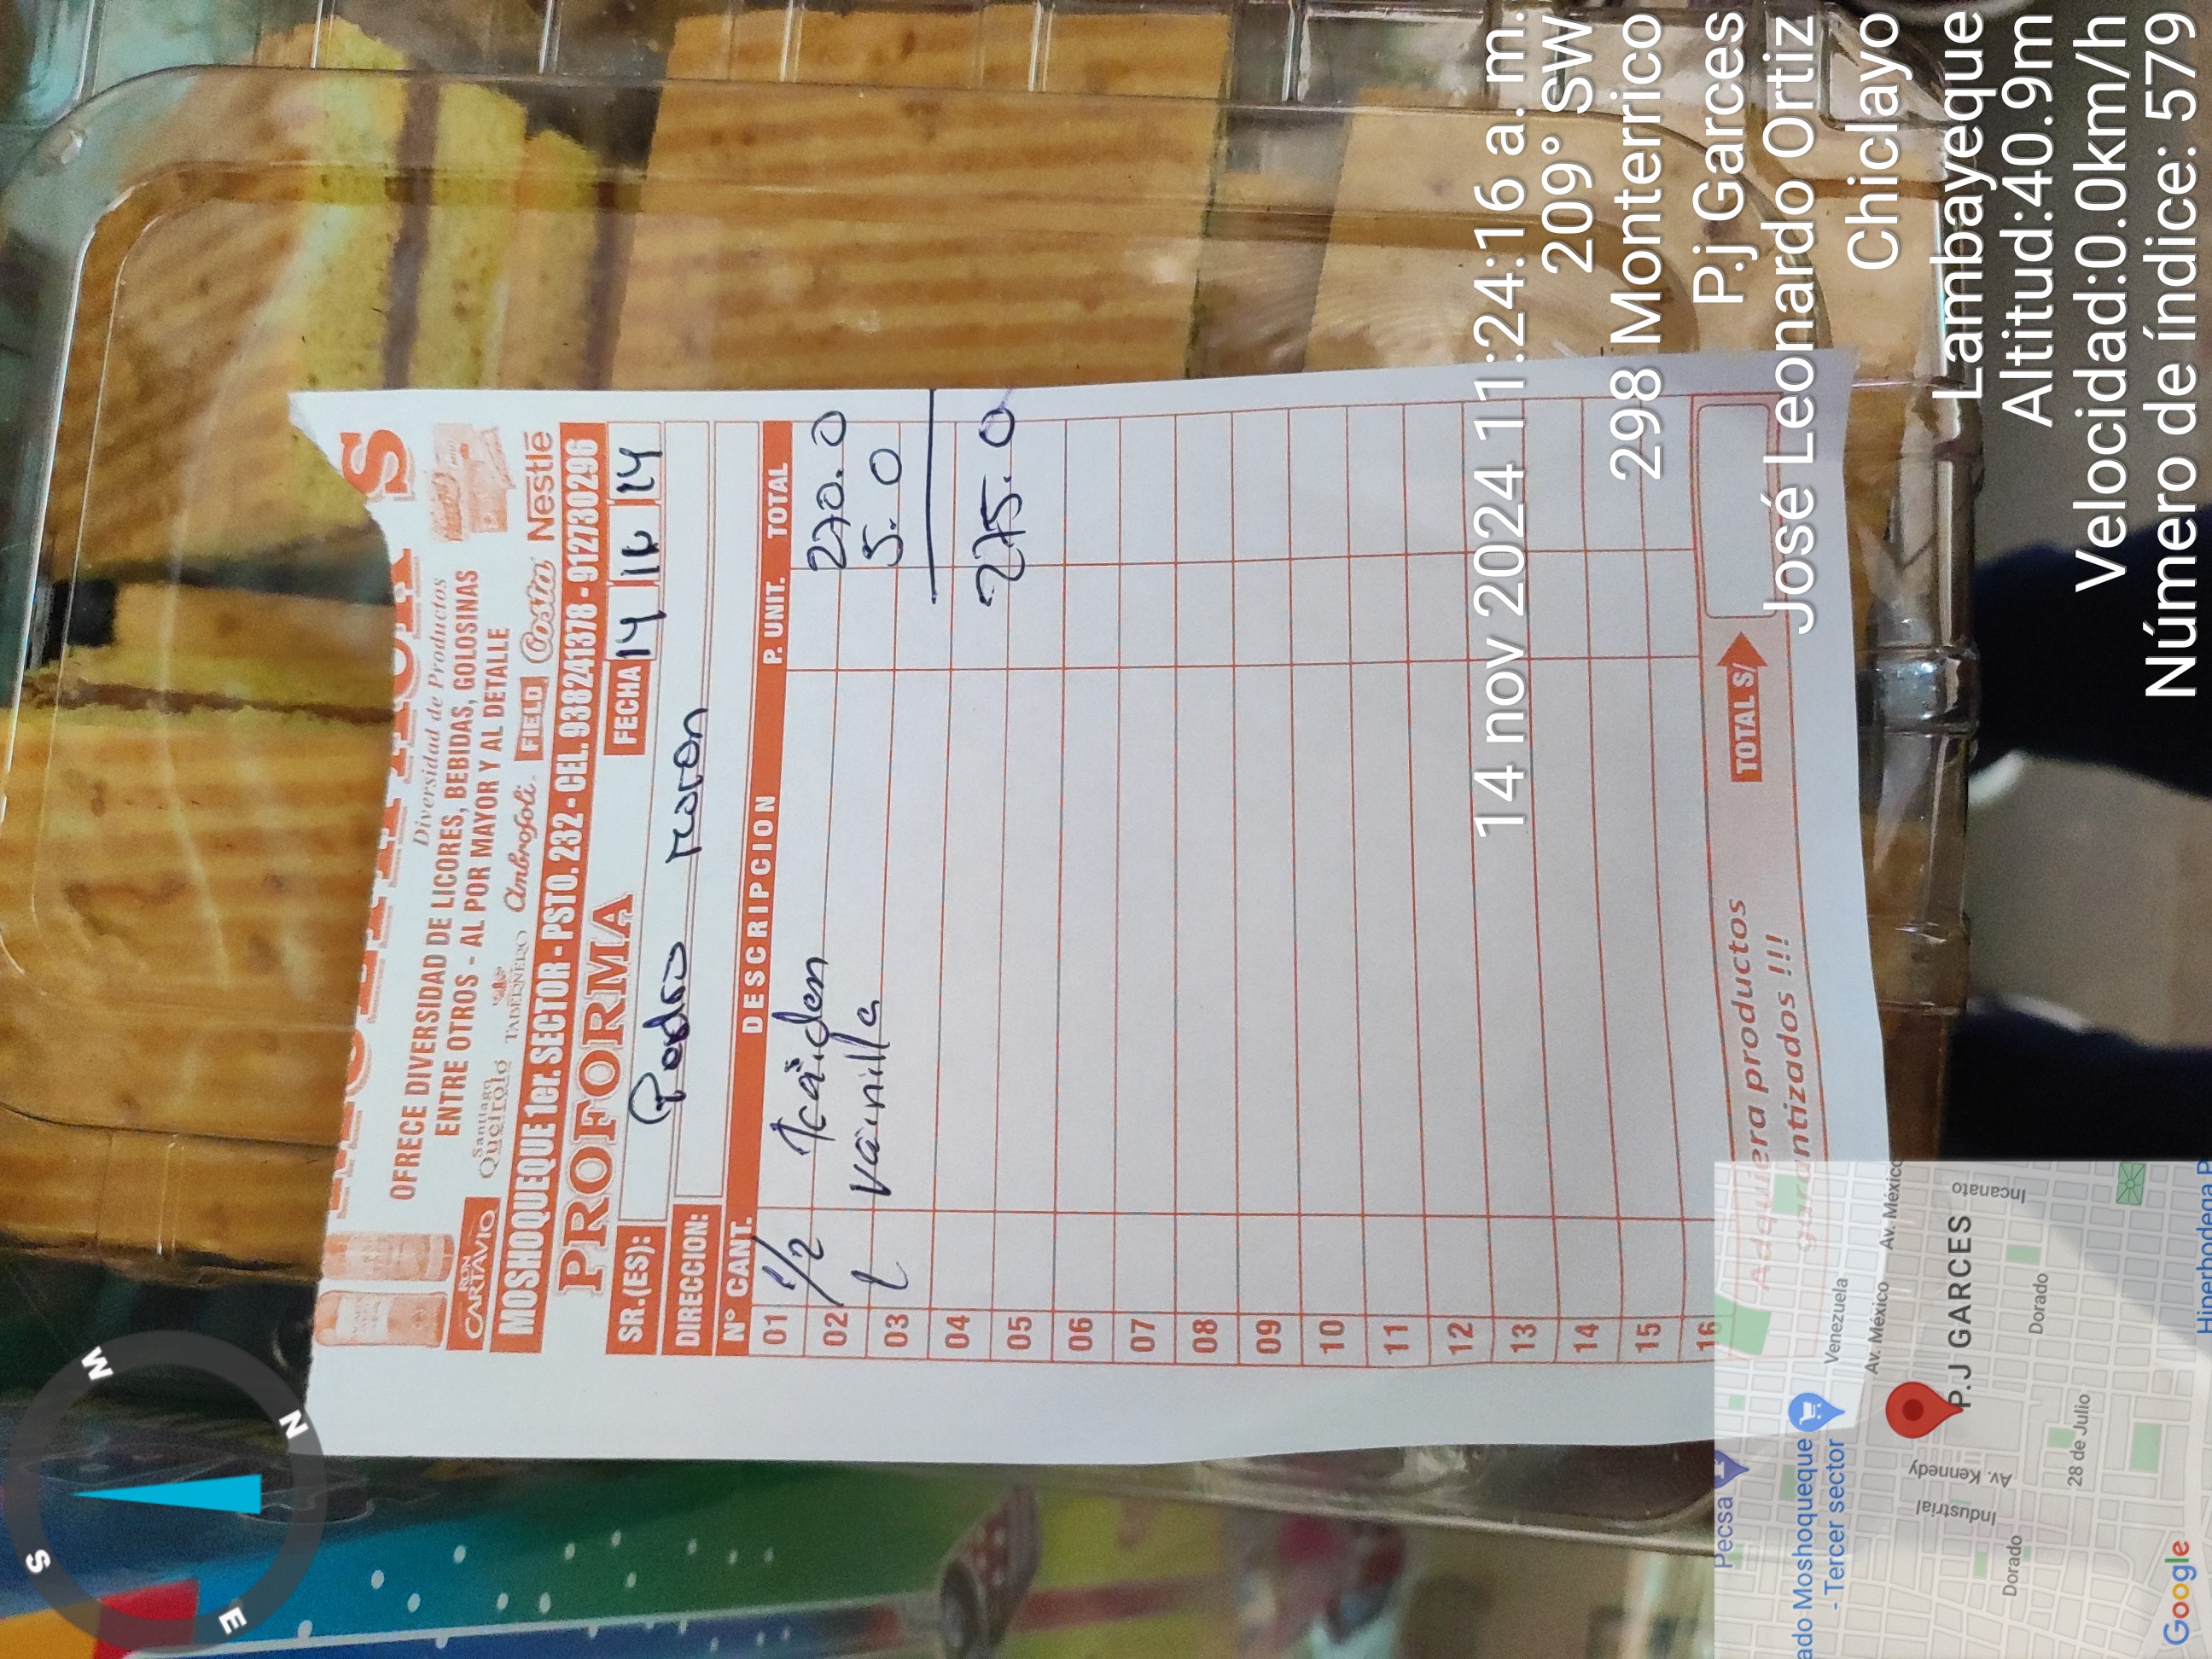 S
W
E
N
S
Diversidad de Productos
OFRECE DIVERSIDAD DE LICORES, BEBIDAS, GOLOSINAS
ENTRE OTROS - AL POR MAYOR Y AL DETALLE
RON CARTAVIO Santiago Queirolo TABERNERO Ambrosoli FIELD Costa Nestlé
MOSHOQUEQUE 1er. SECTOR - PSTO. 232 - CEL. 938241378 - 912730296
PROFORMA
FECHA 14
SR.(ES): Pedro
DIRECCION:
N° CANT. DESCRIPCION P. UNIT. TOTAL
01 1/2 270.0
02 1 Vainilla 5.0
03
04 275.0
05
06
07
08
09
10
11
12
13
14
15
16
Adquiera productos
garantizados !!!
TOTAL S/
14 nov 2024 11:24:16 a. m.
209° SW
298 Monterrico
P.j Garces
José Leonardo Ortiz
Chiclayo
Lambayeque
Altitud:40.9m
Velocidad:0.0km/h
Número de índice: 579
Pecsa
ado Moshoqueque
- Tercer sector
Venezuela
Av. México
Av. México
Industrial
Av. Kennedy
P.J GARCES
Incanato
Dorado
Dorado
28 de Julio
Google
Hiperbodega P